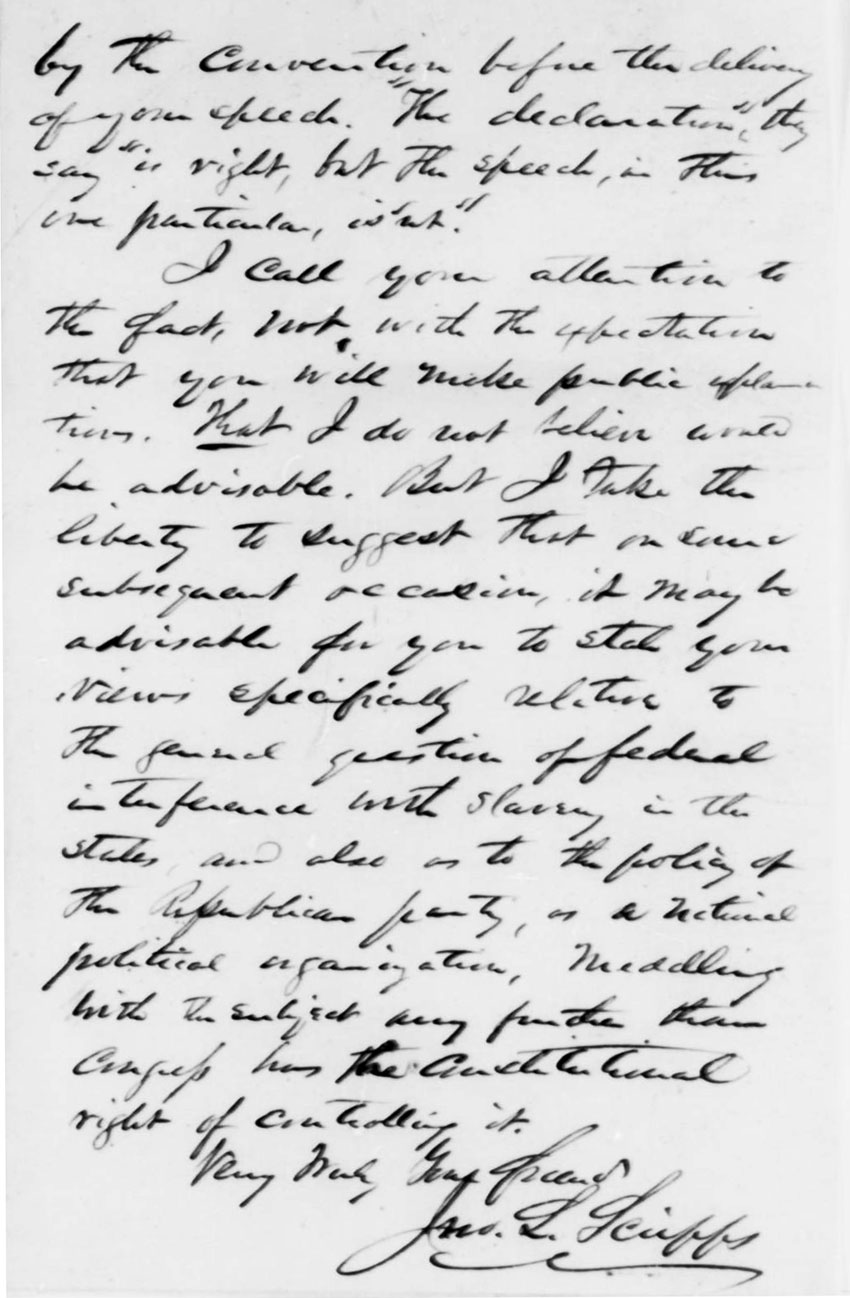 by the Convention before the delivery
of your speech. "The declaration", they
say "is right, but the speech, in this
one particular, is "not."
I call your attention to
the fact, not, with the expectation
that you will make public explana-
tions. That I do not believe would
be advisable. But I take the
liberty to suggest that on some
subsequent occasion, it may be
advisable for you to state your
views specifically relative to
the general question of federal
interference with slavery in the
states, and also as to the policy of
the Republican party, as a national
political organization, meddling
with the subject any further than
Congress has the Constitutional
right of controlling it.
Very Truly Your friend
Jno. L. Scripps